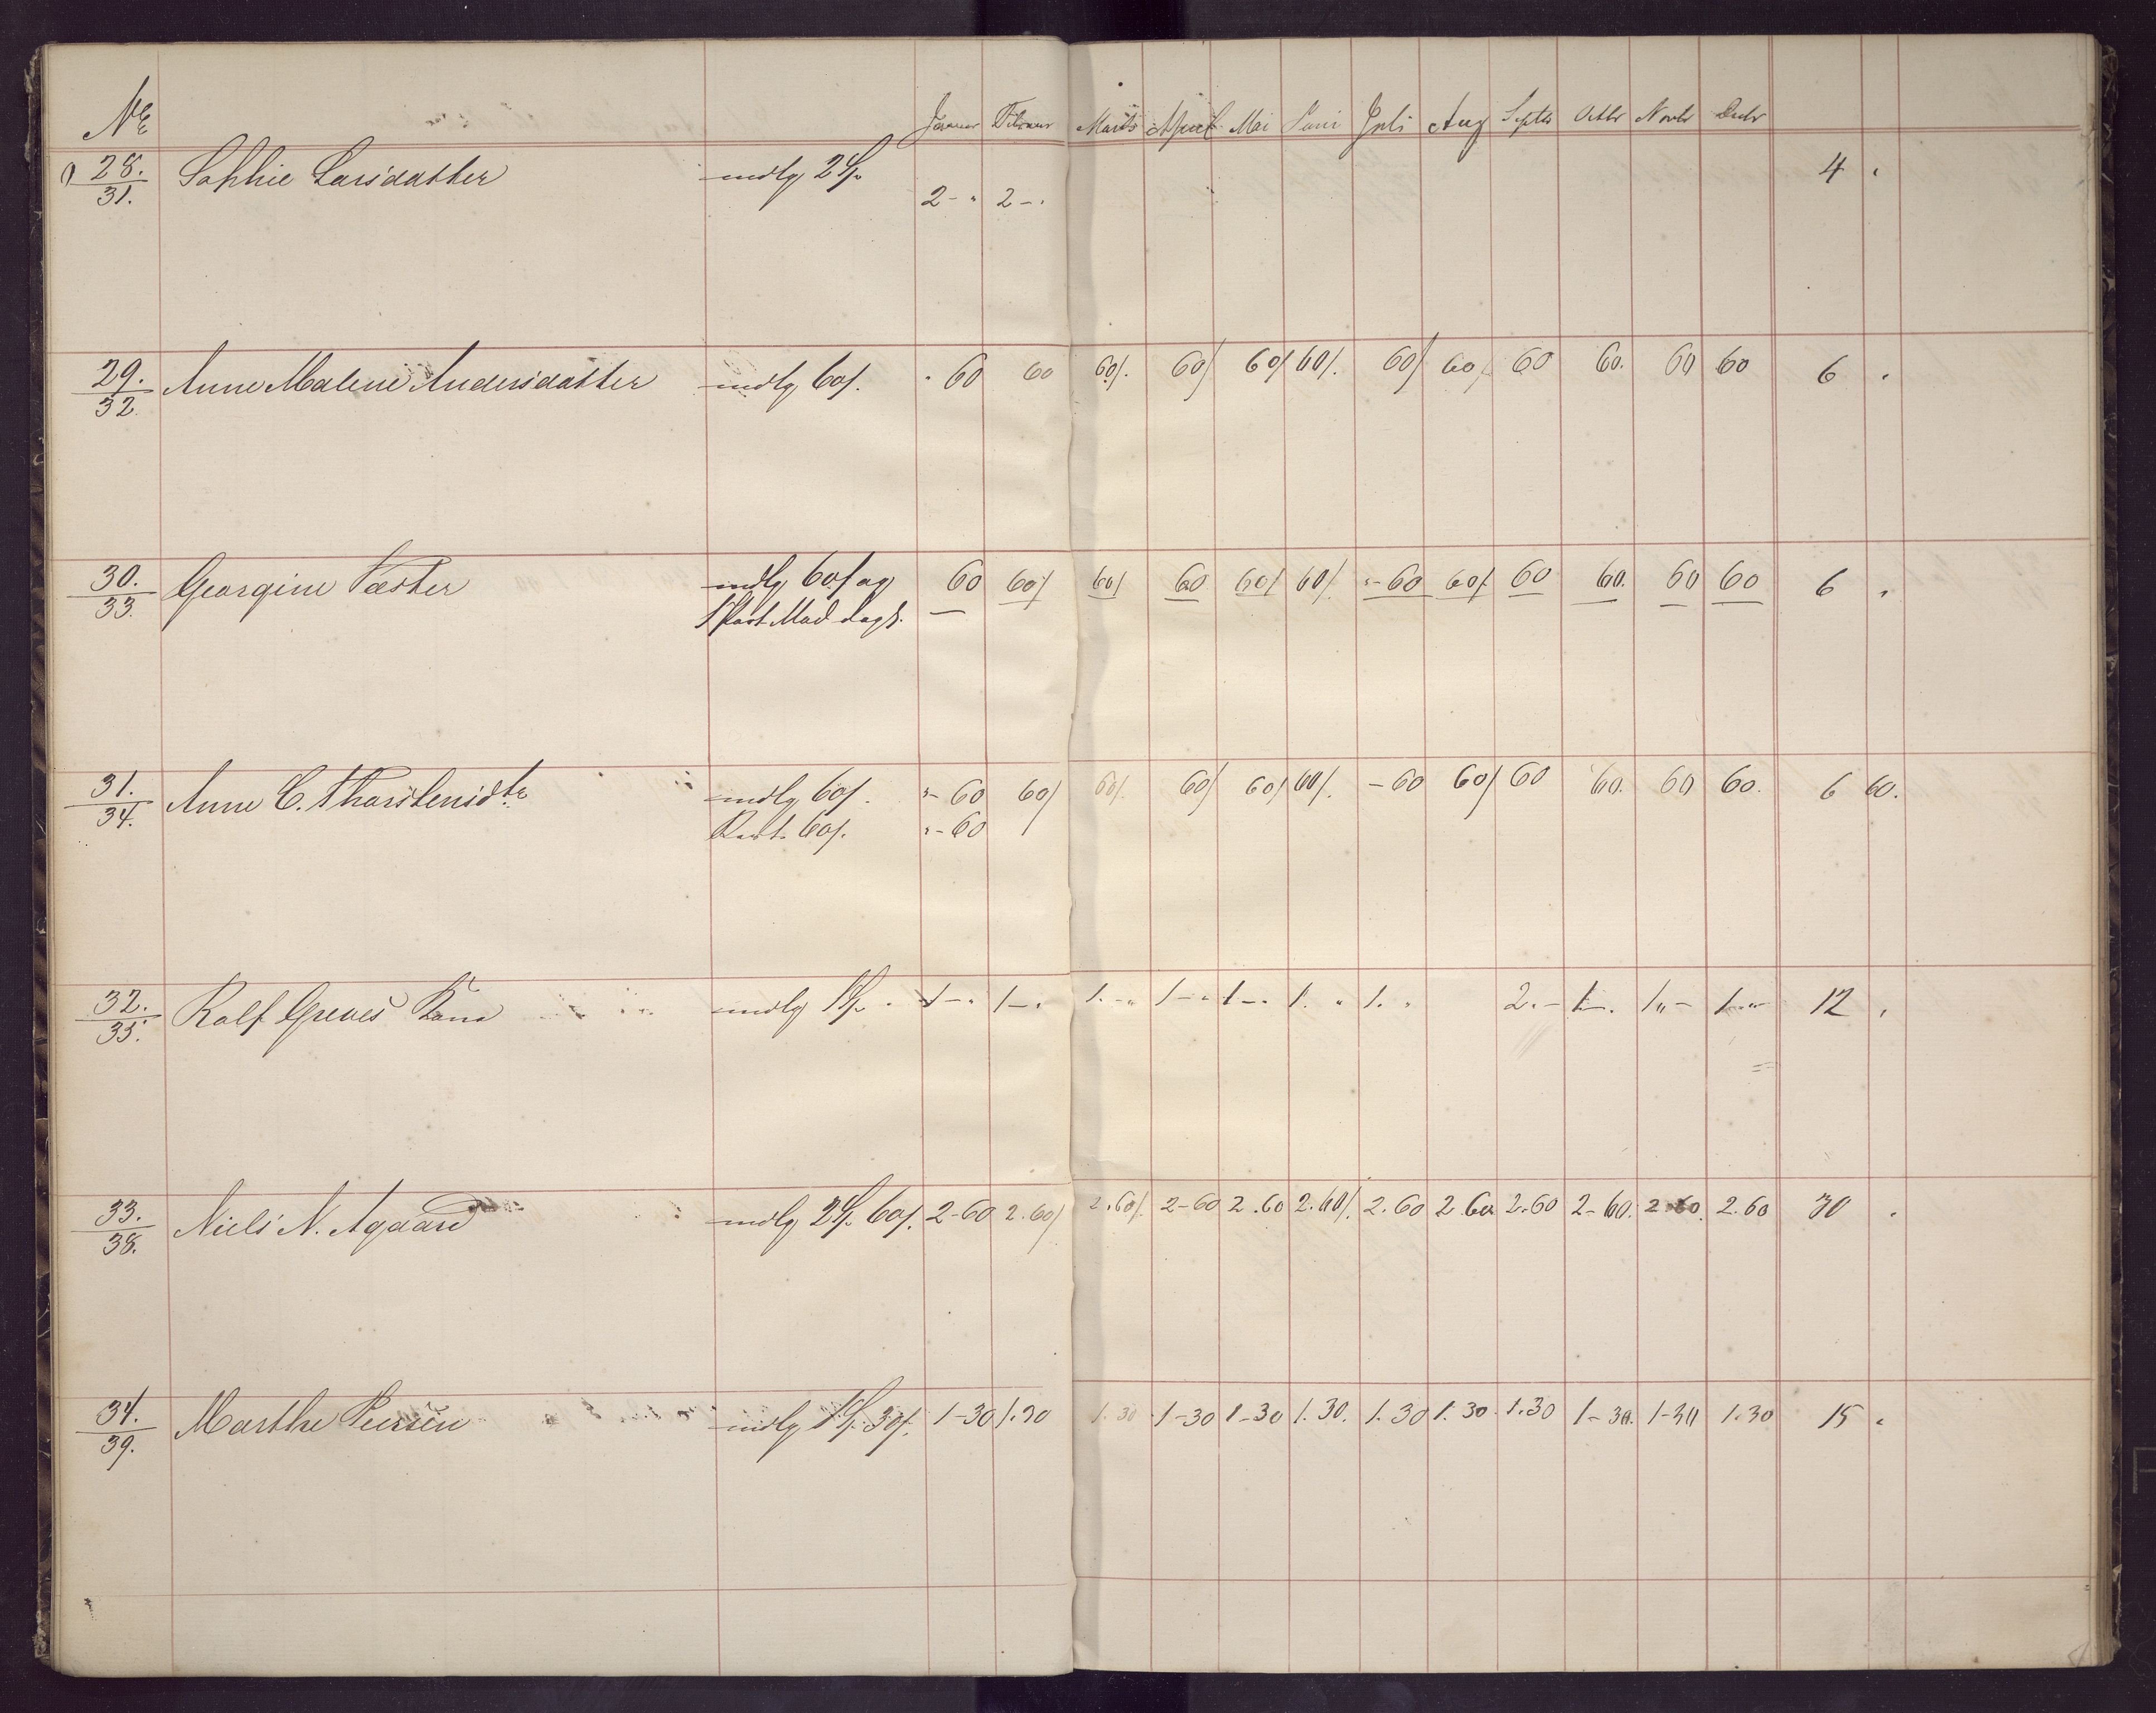 No Januar Februar Marts April Mai Juni Juli Aug Septbr Octbr Novbr Decbr
28. Sophie Larsdatter mdlg 2 Sp. 4 "
31. 2 - " 2 - "
29. Anne Malene Andersdatter mdlg 60 s. " 60 60 60 s. 60 s 60 s 60 s. 60 s 60 s 60 60. 60 60 6 "
32.
30. Georgine Væster mdlg 60 s og 60 60 s 60 s 60 60 s 60 s. "- 60 60 s. 60 60. 60 60 6 "
33. 1 Port. Mad dagl.
31. Anne C. Thorstensdtr mdlg 60 s. "- 60 60 s 60 s. 60 s 60 s 60 s. - 60 60 s 60 60. 60 60. 6 60.
34. Rest. 60 s. "- 60
32. Rolf Greves Kone mdlg 1 Sp. 1 - " 1 - " 1. - " 1 - " 1 - " 1. " 1. " 2. - 1 - . 1 " - 1 - " 12 "
35.
33. Niels N. Agaard mdlg 2 Sp. 60 s. 2-60 2.60 s 2.60 s. 2-60 2.60 2.60 s. 2.60 2.60 2.60 2-60. 2.60. 2.60 30 "
38.
34. Marthe Iversen mdlg 1 Sp. 30 s. 1-30 1.30 1.30 1-30 1-30 1.30. 1.30 1.30. 1.30 1-30. 1-30 1.30 15 "
39.